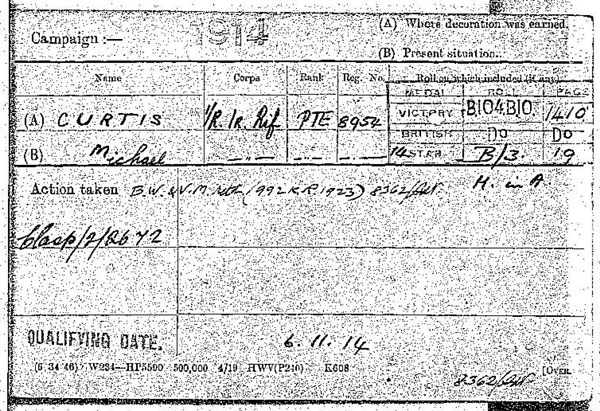 1914
Campaign :—
(A) Where decoration was earned.
(B) Present situation.
Name Corps Rank Reg. No. Roll on which included (if any).
MEDAL ROLL PAGE
(A) CURTIS 1/R. Ir. Rif PTE 8954 VICTORY B104B10. 1410
BRITISH DO DO
(B) Michael — " — — " — — " — 14 STAR B/3. 19
Action taken B.W. & V.M. (992 K.R. 1923) 8362/ H. in A
Clasp/2/2672
QUALIFYING DATE. 6. 11. 14
(6 34 46) W234—HP5500 500,000 4/19 HWV(P240) K608 [OVER.
8362/